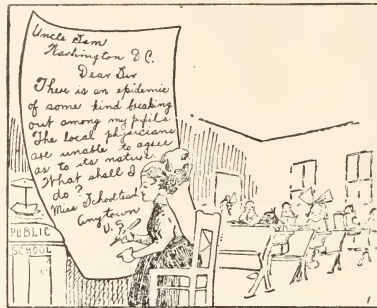 Uncle Sam
Washington D C.
Dear Sir
There is an epidemic
of some kind breaking
out among my pupils
The local physicians
are unable to agree
as to its nature
What shall I
do?
Miss Schoolteach
Anytown
U.S.
PUBLIC
SCHOOL